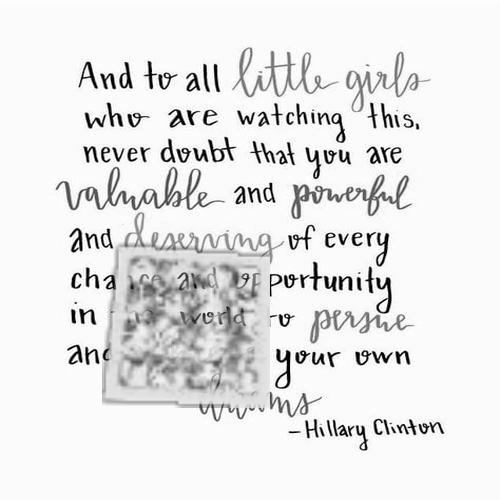 And to all little girls
who are watching this,
never doubt that you are
valuable and powerful
and deserving of every
chance and opportunity
in world to persue
and your own
dreams
–Hillary Clinton